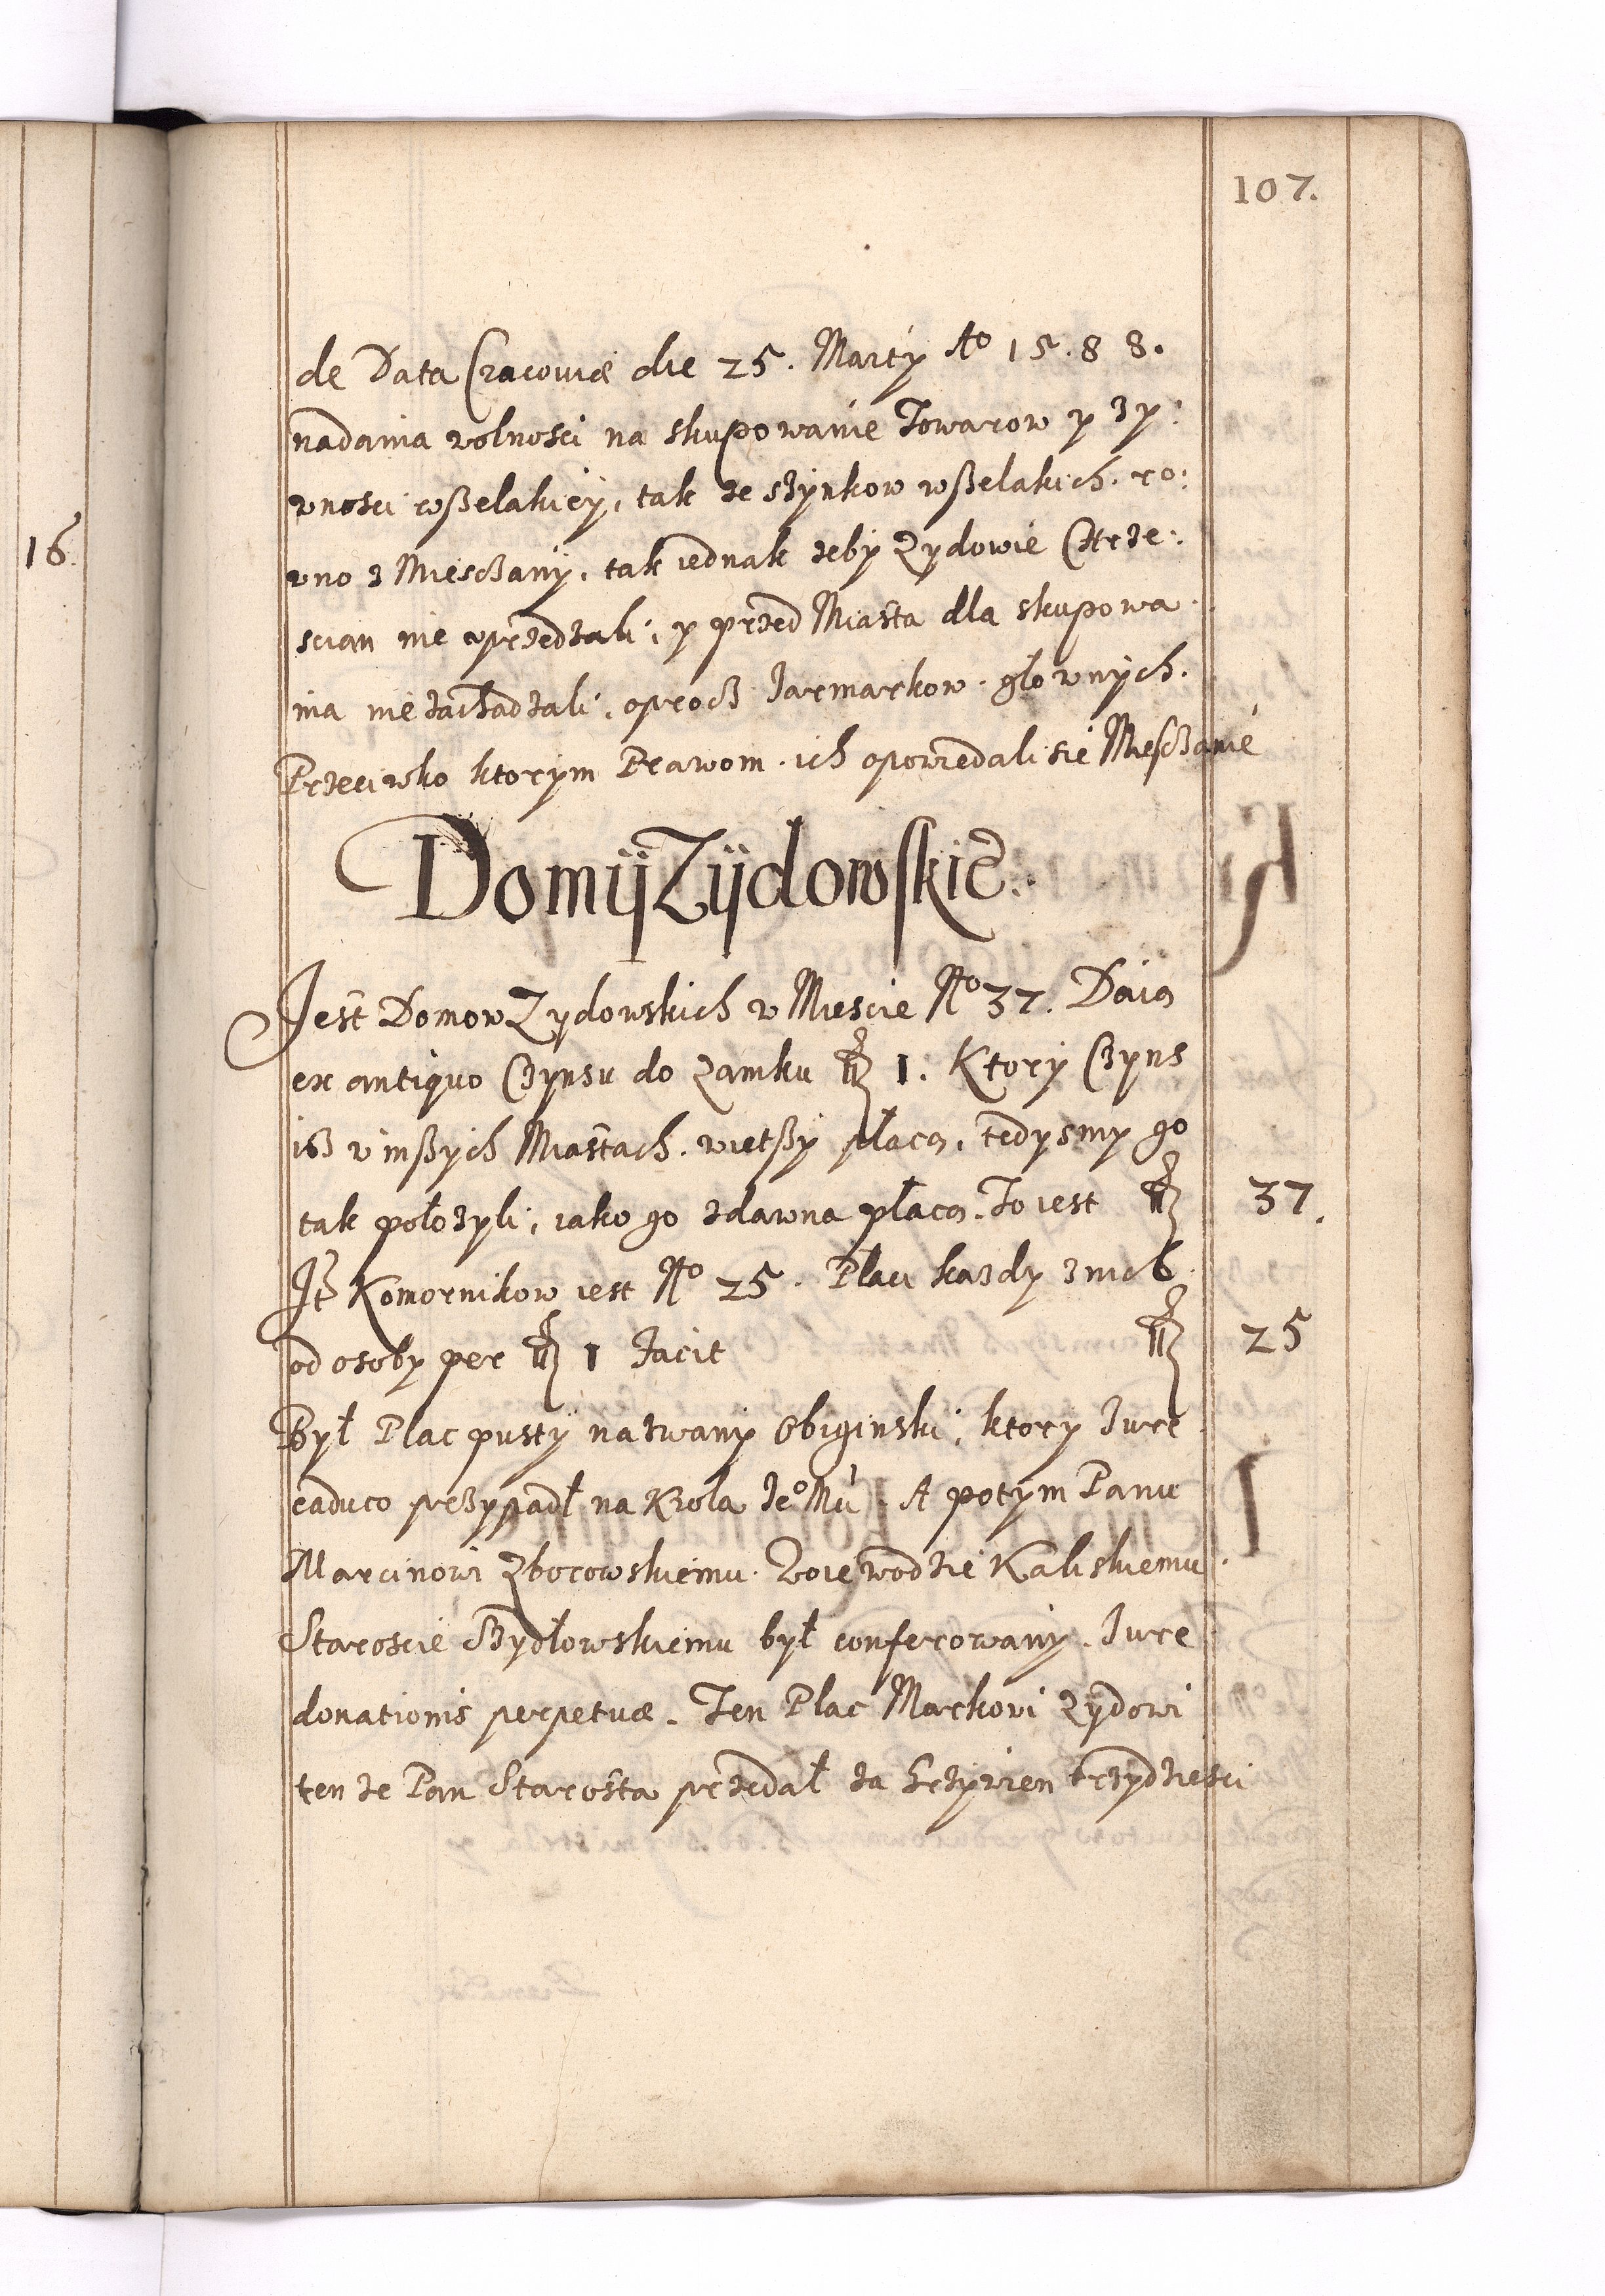 107.
16.
de Data Cracoviæ die 25. Marty Ao 15.88.
nadania wolnosci na skupowanie Towarow y zy:
wnosci wszelakiey, tak ze szynkow wszelakich. ro:
wno z Miesczany, tak iednak zeby Zydowie Chrze:
scian nie uprzedzali, y przed Miasta dla skupowa
nia nie zachadzali, oprocz Jarmarkow. głownych.
Przeciwko ktorym Prawom. ich opowiedali sie Miesczanie
Domÿ Zÿdowskie.
Jest Domow Zydowskich w Miescie No 37. Daią
ex antiquo Czynsu do Zamku fl 1. Ktory Czyns
isz w inszych Miastach. wietszy płacą, tedysmy go
tak położyli, iako go zdawna płacą. To iest fl 37.
It Komornikow iest No 25. Płaci kazdy z nich
od osoby per fl 1 Facit fl 25
Był Plac pusty nazwany Obiginski, ktory Iure
caduco przypadł na Krola Jeo Mci. A potym Panu
Marcinowi Zborowskiemu. Woiewodzie Kaliskiemu
Staroscie Szydłowskiemu był conferowany. Iure
donationis perpetuæ. Ten Plac Markowi Zydowi
ten ze Pan Starosta przedał za Grzywien trzydziesci